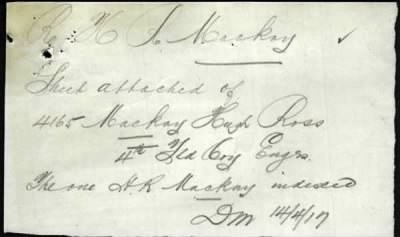 Re H S Mackay
Sheet attached of
4165 Mackay Hugh Ross
4th Fld Coy Engrs.
The one H.R Mackay indexed
DM 14/4/17